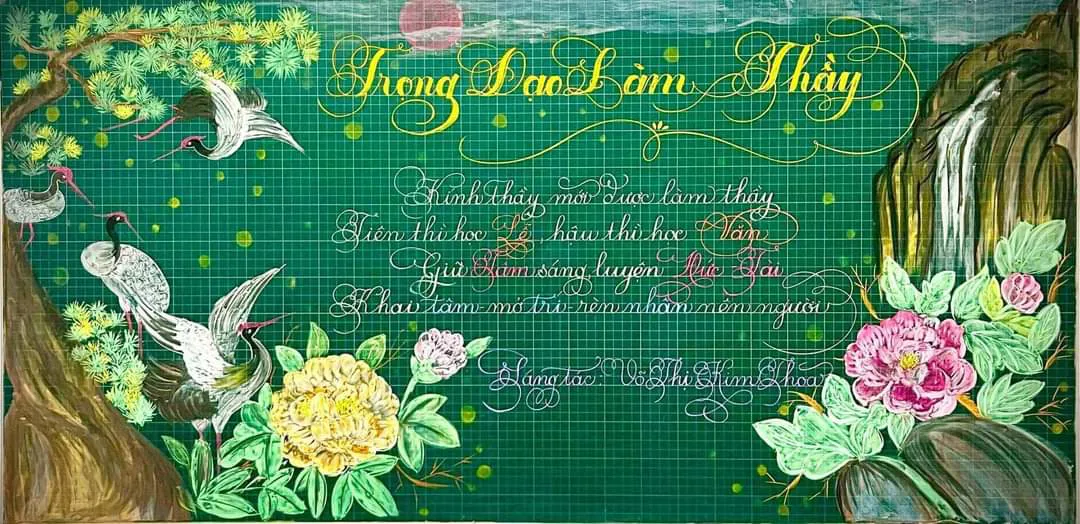 Trọng Đạo Làm Thầy
Kính thầy mới được làm thầy
Tiên thì học Lễ, hậu thì học Văn
Giữ Tâm sáng, luyện Đức Tài
Khai tâm - mở trí - rèn nhân nên người
Sáng tác: Võ Thị Kim Thoa